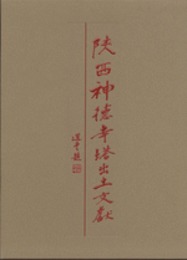 陝西神德寺塔出土文獻